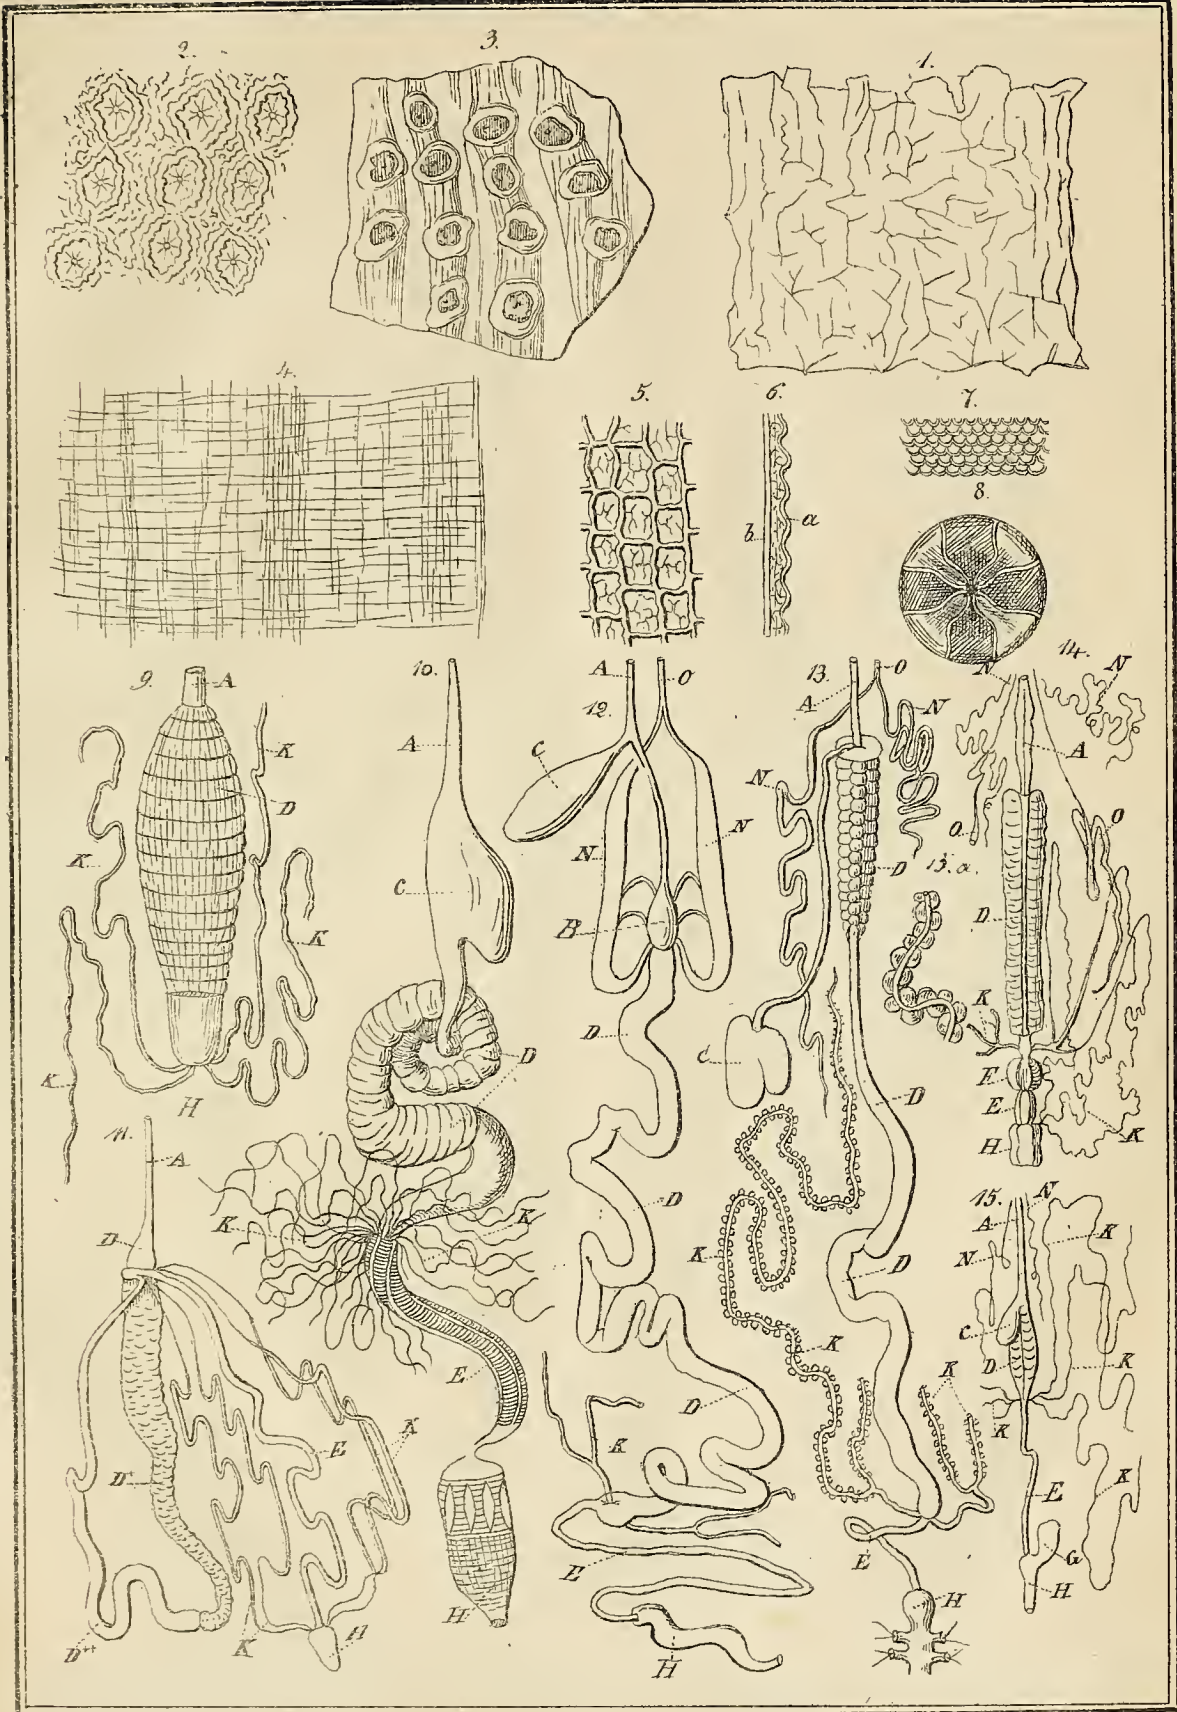 2.
3.
1.
4.
5.
6.
7.
b
a
8.
9.
A
K
D
K
K
K
H
10.
A
C
D
K
K
E
H
11.
A
D
D'
E
K
K
H
D''
12.
A
O
C
N
N
B
D
D
D
K
E
H
13.
A
O
N
N
D
C
D
D
K
K
K
E
H
13.a.
14.
N
N
A
O
O
D
K
F
E
H
K
15.
A
N
N
K
C
D
K
K
K
E
G
H